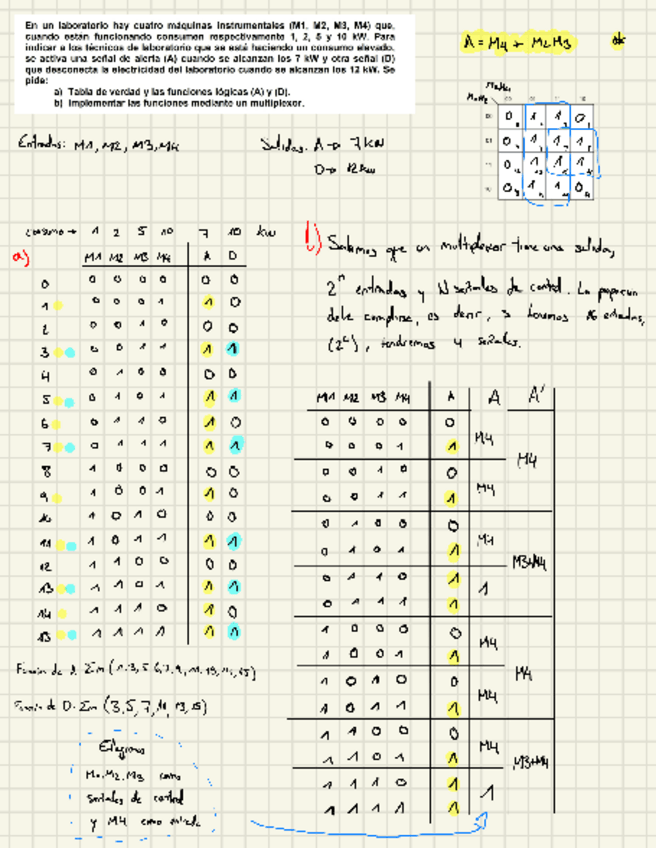 En un laboratorio hay cuatro máquinas instrumentales (M1, M2, M3, M4) que,
cuando están funcionando consumen respectivamente 1, 2, 5 y 10 kW. Para
indicar a los técnicos de laboratorio que se está haciendo un consumo elevado,
se activa una señal de alerta (A) cuando se alcanzan los 7 kW y otra señal (D)
que desconecta la electricidad del laboratorio cuando se alcanzan los 12 kW. Se
pide:
a) Tabla de verdad y las funciones lógicas (A) y (D).
b) Implementar las funciones mediante un multiplexor.
A = M4 + M2M3
Entradas: M1, M2, M3, M4
Salidas: A → 7 kW
D → 12 kW
consumo → 1 2 5 10 7 10 kW
a)
M1 M2 M3 M4 A D
0 0 0 0 0 0 0
1 0 0 0 1 1 0
2 0 0 1 0 0 0
3 0 0 1 1 1 1
4 0 1 0 0 0 0
5 0 1 0 1 1 1
6 0 1 1 0 1 0
7 0 1 1 1 1 1
8 1 0 0 0 0 0
9 1 0 0 1 1 0
10 1 0 1 0 0 0
11 1 0 1 1 1 1
12 1 1 0 0 0 0
13 1 1 0 1 1 1
14 1 1 1 0 1 0
15 1 1 1 1 1 1
Función de A: Σm (1,3,5,6,7,9,11,13,14,15)
Función de D: Σm (3,5,7,11,13,15)
Elegimos
M1, M2, M3 como
señales de control
y M4 como entrada
b) Sabemos que un multiplexor tiene una salida,
2^n entradas y N señales de control. La
debe cumplirse, es decir, si tenemos 16 entradas,
(2^4), tendremos 4 señales.
M1 M2 M3 M4 A A A'
0 0 0 0 0
M4
0 0 0 1 1
M4
0 0 1 0 0
M4
0 0 1 1 1
0 1 0 0 0
M4
0 1 0 1 1
M3+M4
0 1 1 0 1
1
0 1 1 1 1
1 0 0 0 0
M4
1 0 0 1 1
M4
1 0 1 0 0
M4
1 0 1 1 1
1 1 0 0 0
M4
1 1 0 1 1
M3+M4
1 1 1 0 1
1
1 1 1 1 1